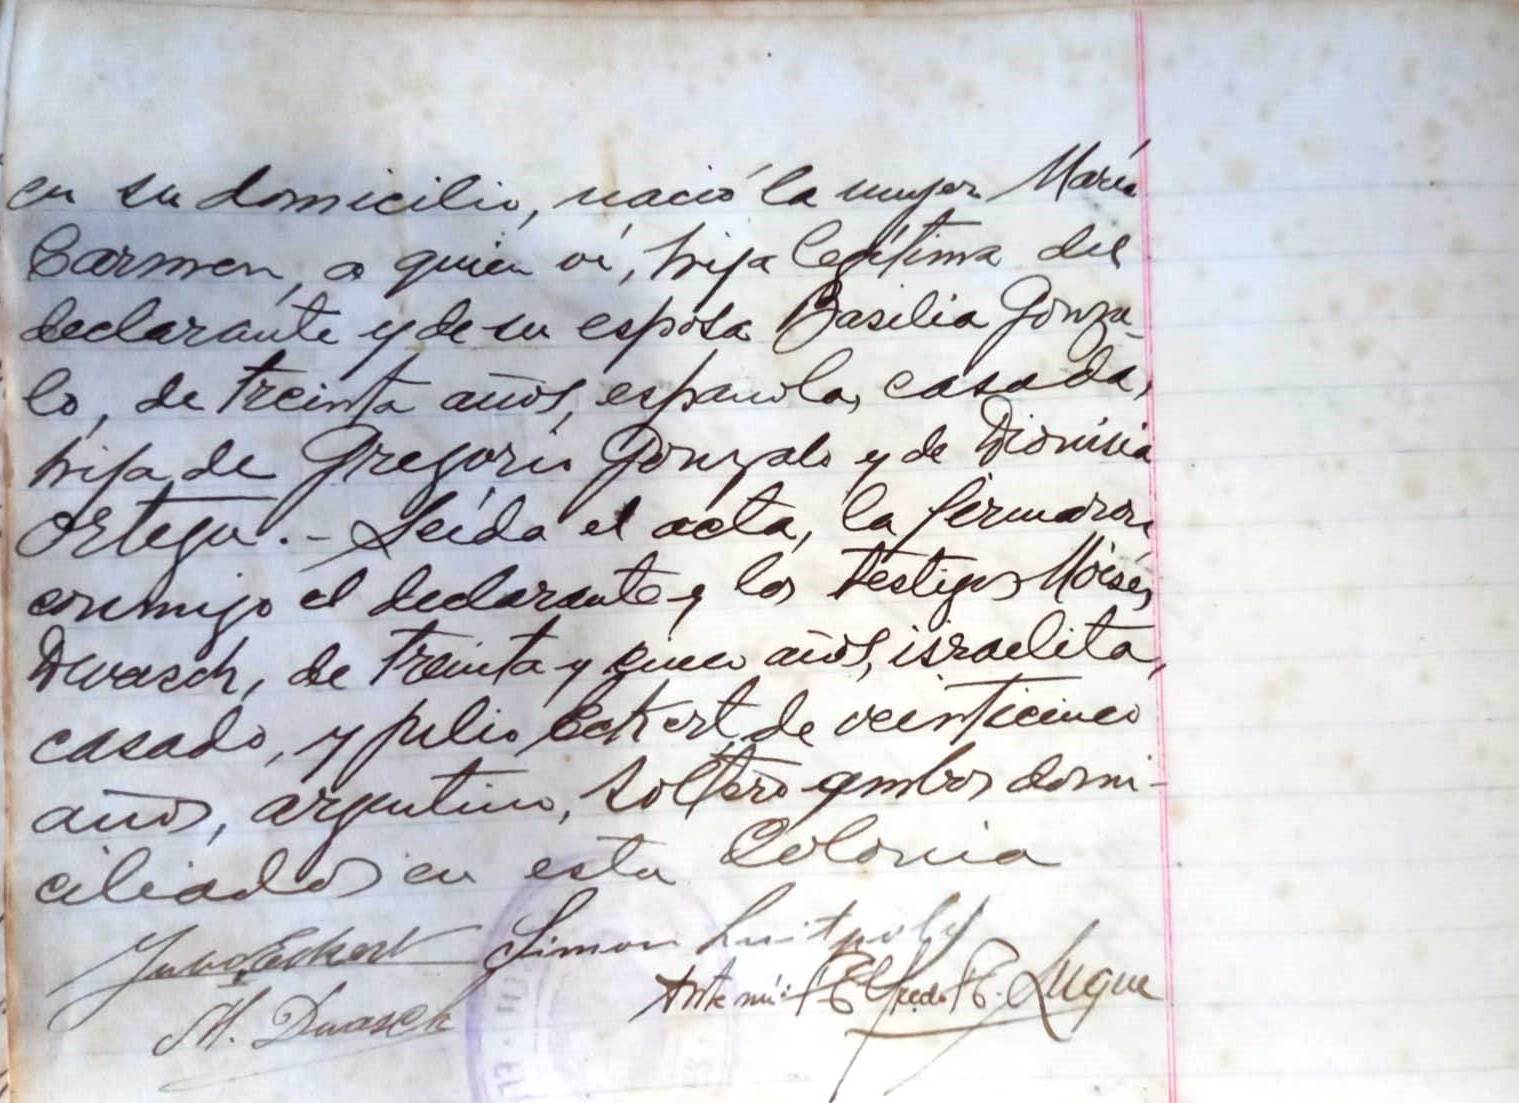 en su domicilio, nació la mujer María
Carmen, a quien ví, hija legítima del
declarante y de su esposa Basilia Gonza-
lo, de treinta años, española, casada,
hija de Gregorio Gonzalo y de Dionisia
Ortega.- Leída el acta, la firmaron
conmigo el declarante y los testigos Moisés
Dwasch, de treinta y cinco años, israelita,
casado, y Julio Eckert, de veinticinco
años, argentino, soltero ambos domi-
ciliados en esta Colonia
Julio Eckert Simon
M. Dwasch Ante mí: Alfredo E. Luque